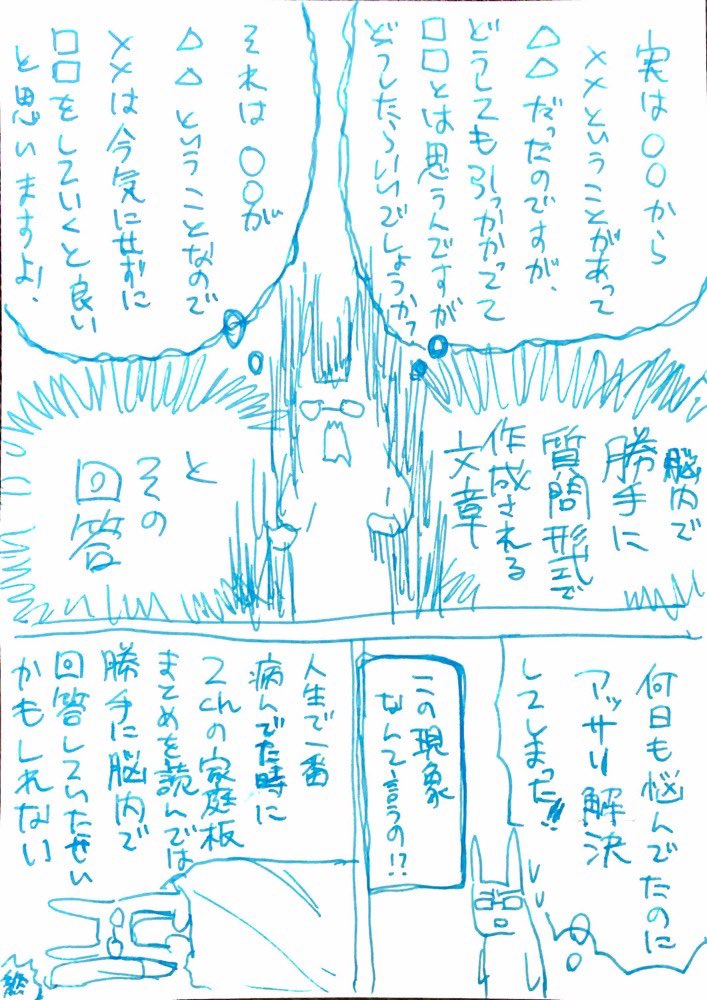 実は〇〇から
××ということがあって
△△だったのですが、
どうしても引っかかってて
□□とは思うんですが
どうしたらいいでしょうか?
それは〇〇が
△△ということなので
××は今気にせずに
□□をしていくと良い
と思いますよ!
脳内で
勝手に
質問形式で
作成される
文章
と
その
回答
何日も悩んでたのに
アッサリ解決
してしまった!!
この現象
なんて言うの!?
人生で一番
病んでた時に
2chの家庭板
まとめを読んでは
勝手に脳内で
回答していたせい
かもしれない